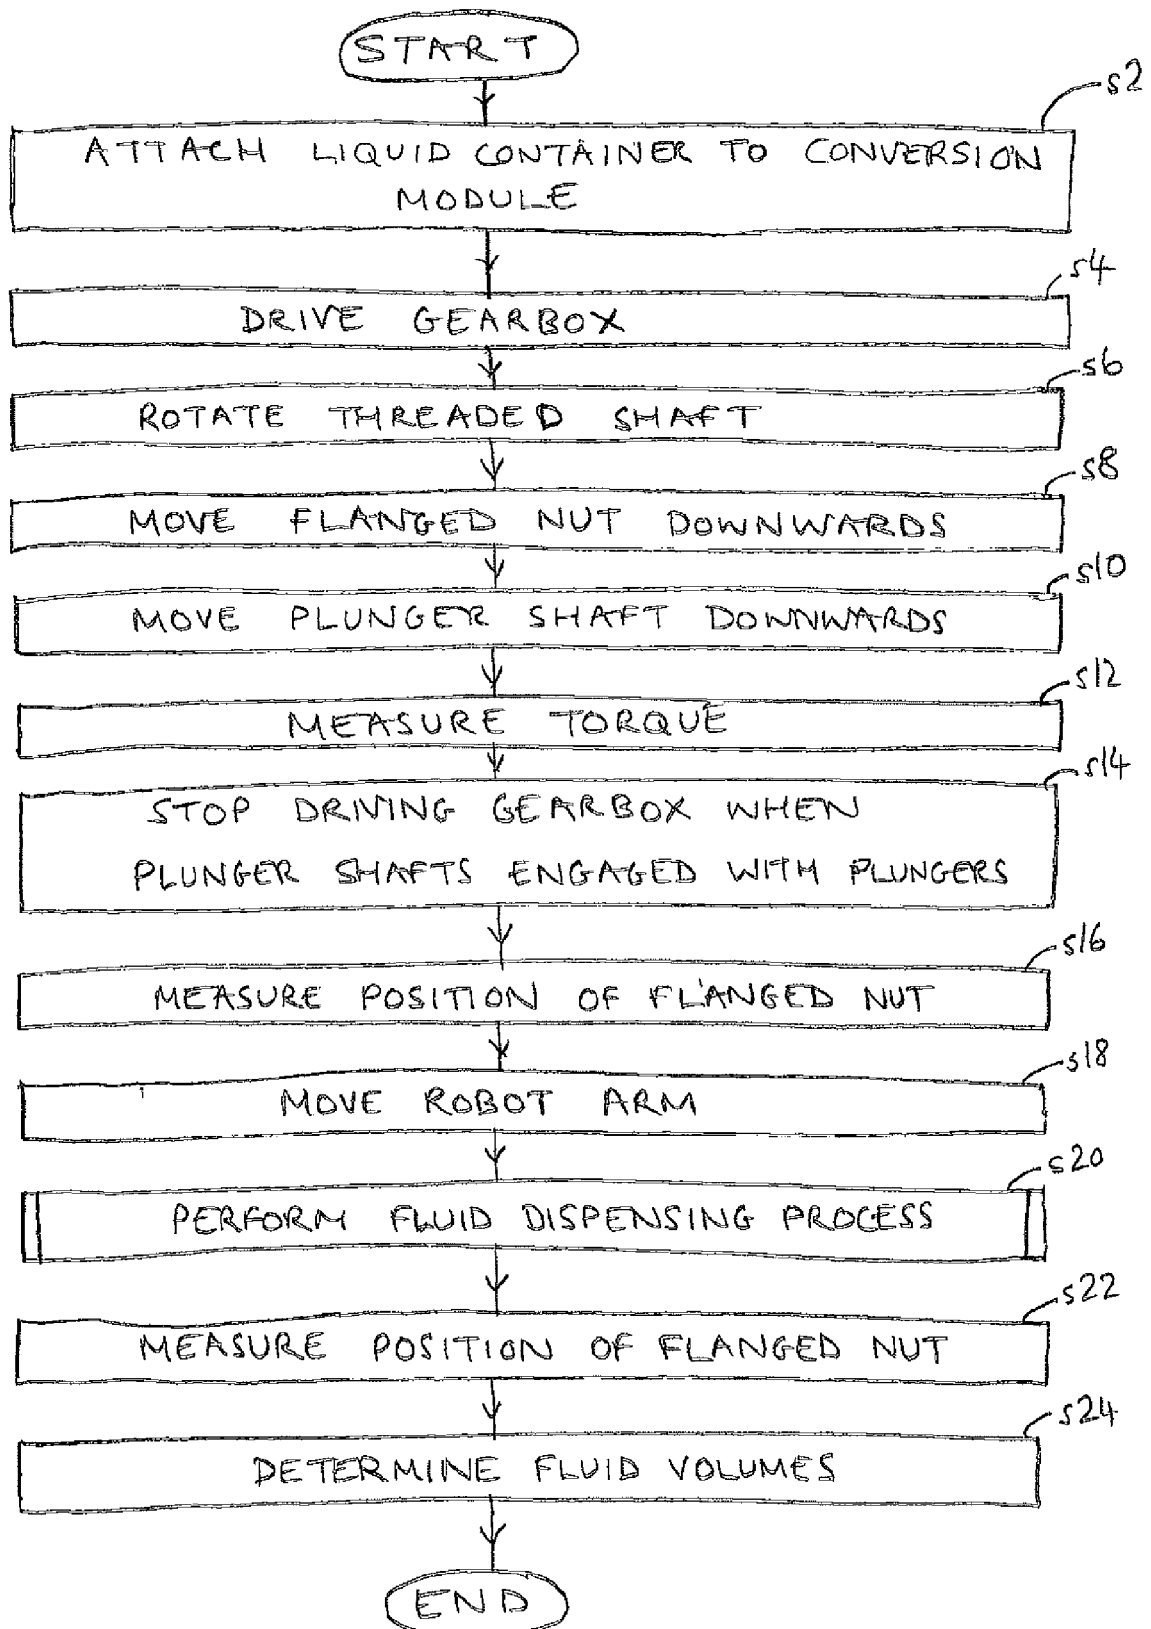 START
s2
ATTACH LIQUID CONTAINER TO CONVERSION
MODULE
s4
DRIVE GEARBOX
s6
ROTATE THREADED SHAFT
s8
MOVE FLANGED NUT DOWNWARDS
s10
MOVE PLUNGER SHAFT DOWNWARDS
s12
MEASURE TORQUE
s14
STOP DRIVING GEARBOX WHEN
PLUNGER SHAFTS ENGAGED WITH PLUNGERS
s16
MEASURE POSITION OF FLANGED NUT
s18
MOVE ROBOT ARM
s20
PERFORM FLUID DISPENSING PROCESS
s22
MEASURE POSITION OF FLANGED NUT
s24
DETERMINE FLUID VOLUMES
END